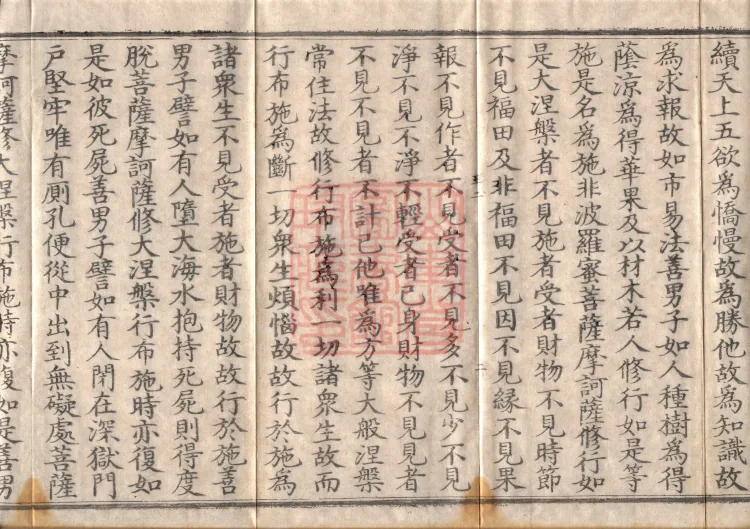 續天上五欲為憍慢故為勝他故為知識故
為求報故如市易法善男子如人種樹為得
蔭涼為得華果及以材木若人修行如是等
施是名為施非波羅蜜菩薩摩訶薩修行如
是大涅槃者不見施者受者財物不見時節
不見福田及非福田不見因不見緣不見果
報不見作者不見受者不見多不見少不見
淨不見不淨不輕受者己身財物不見見者
不見不見者不計己他唯為方等大般涅槃
常住法故修行布施為利一切諸眾生故而
行布施為斷一切眾生煩惱故故行於施為
諸眾生不見受者施者財物故故行於施善
男子譬如有人墮大海水抱持死屍則得度
脫菩薩摩訶薩修大涅槃行布施時亦復如
是如彼死屍善男子譬如有人閉在深獄門
戶堅牢唯有廁孔便從中出到無礙處菩薩
摩訶薩修大涅槃行布施時亦復如是善男